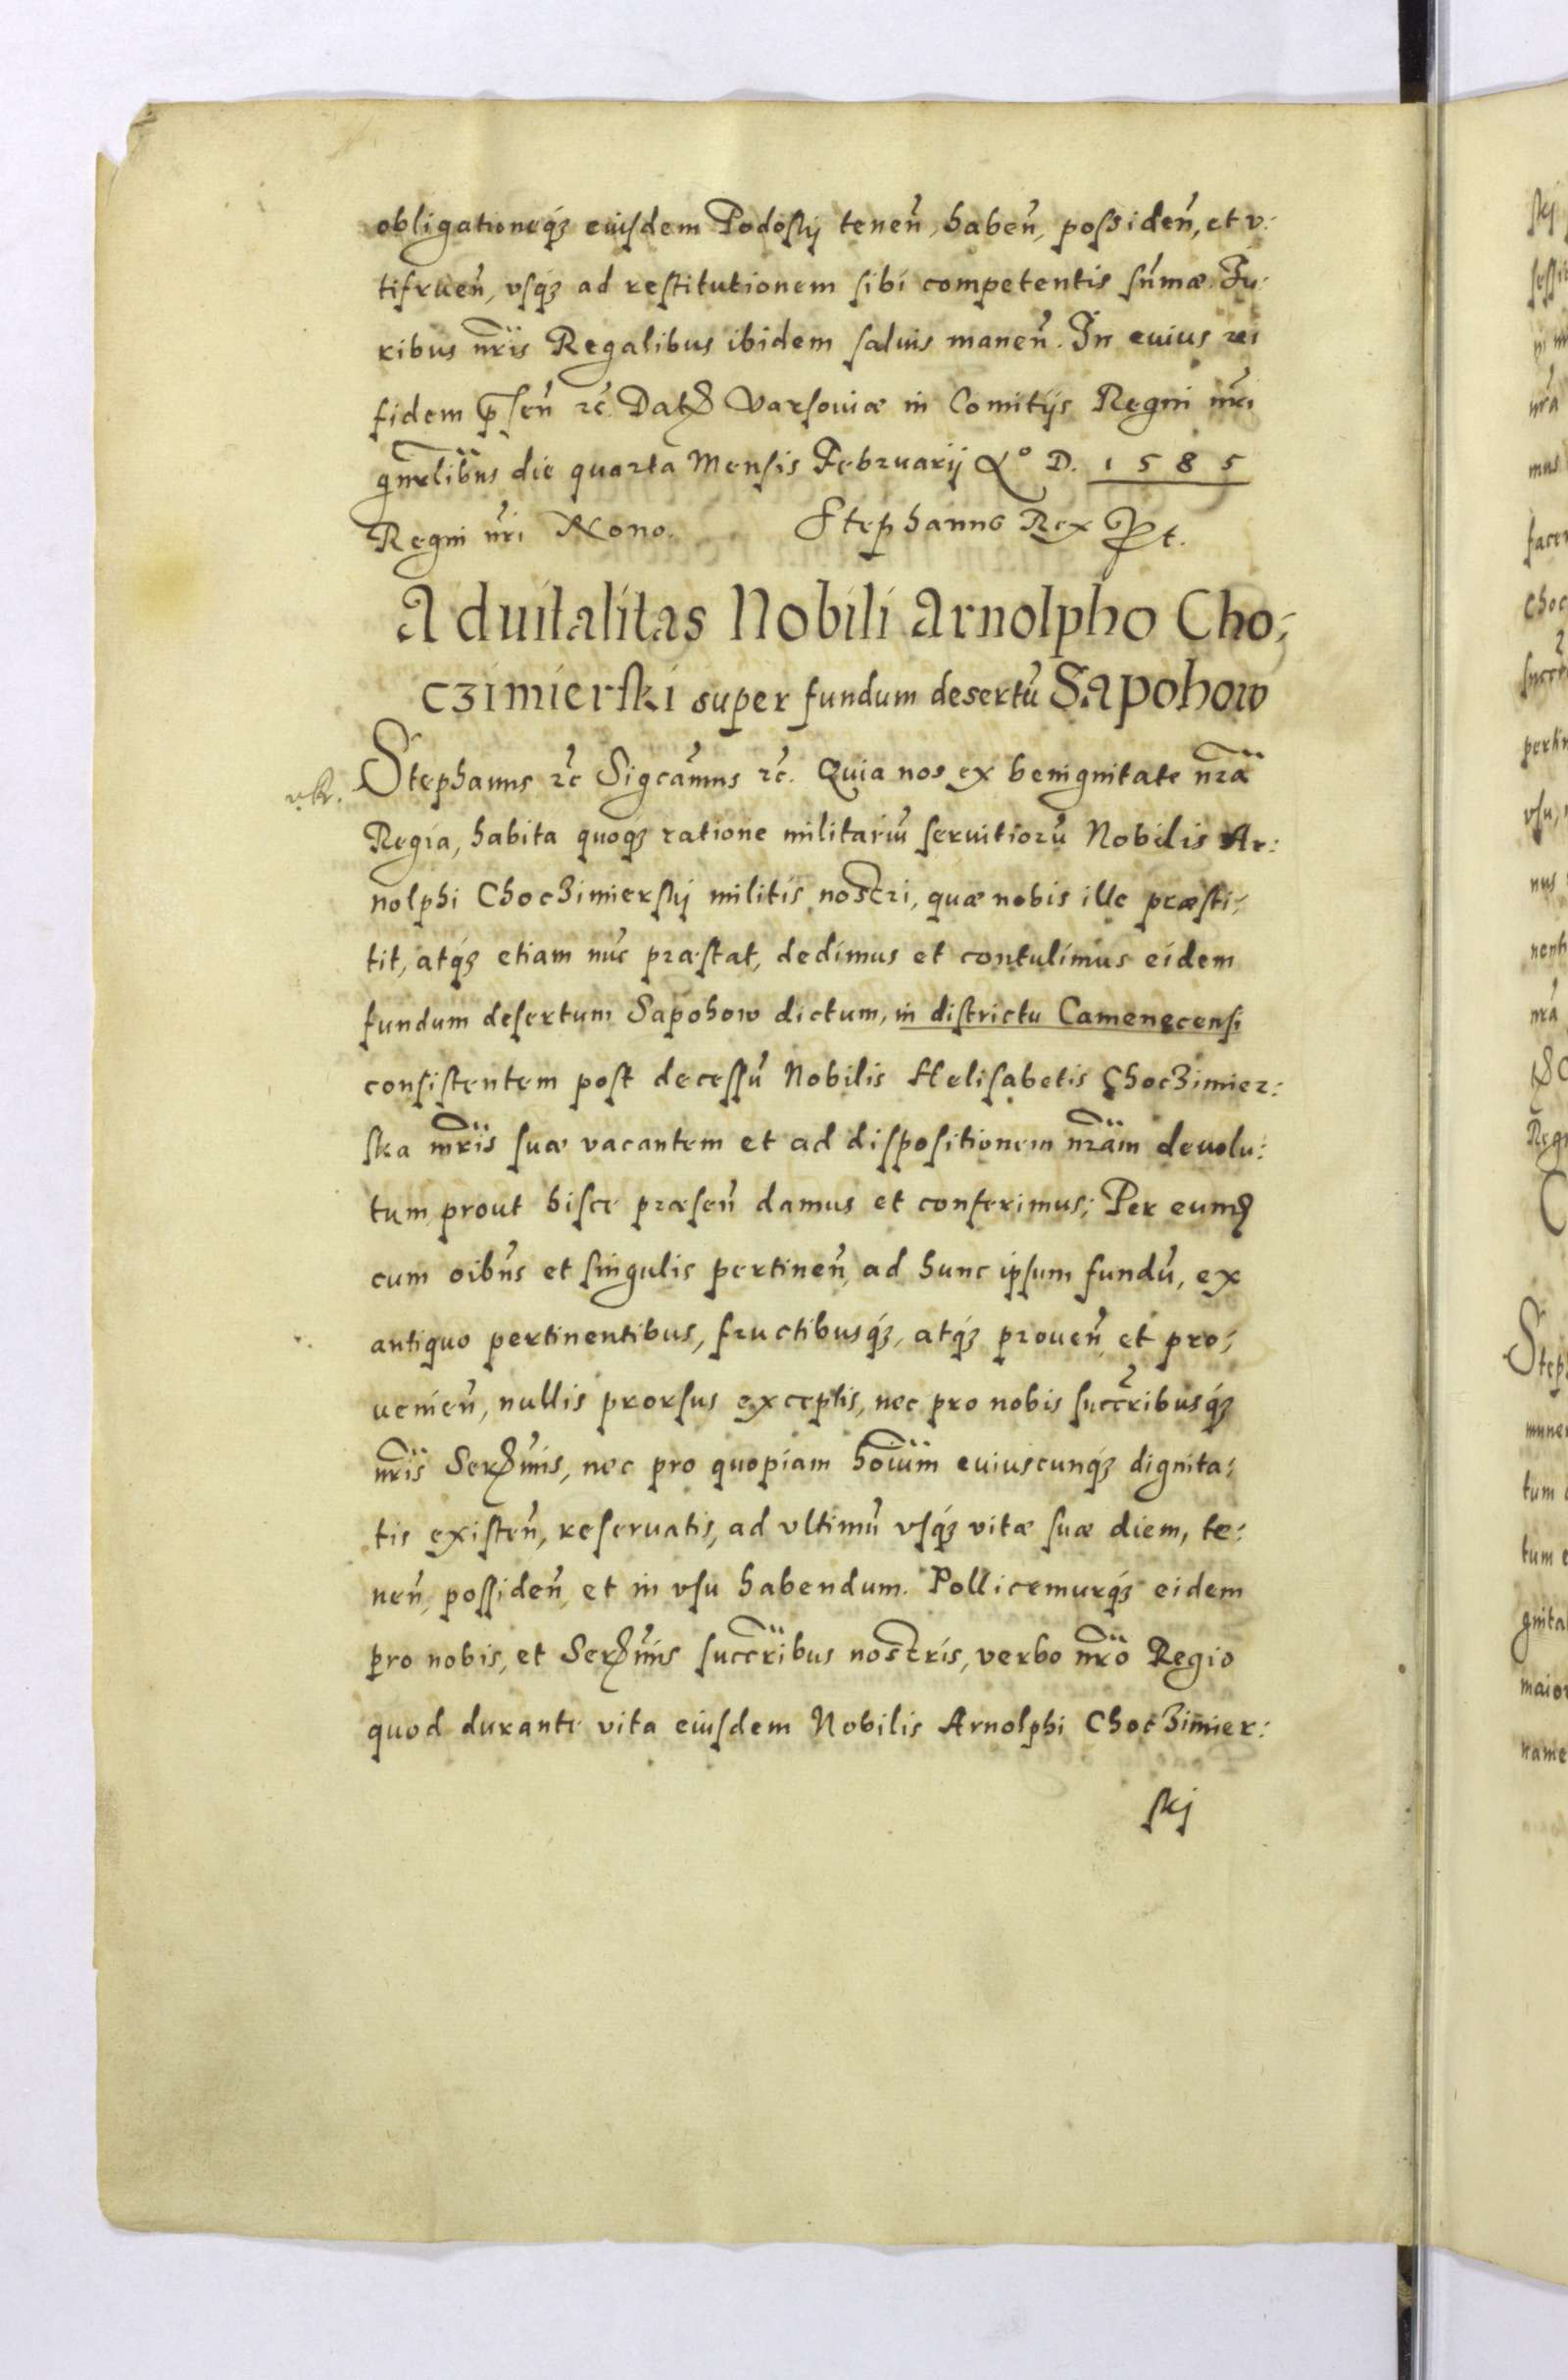 obligationeq́ꝫ eiusdem Podoskij tenen̄, haben̄, possiden̄, et v:
tifruen̄, vsq́ꝫ ad restitutionem sibi competentis sūmæ. Iu:
ribus nr̄is Regalibus ibidem saluis manen̄. In cuius rei
fidem p̄sen̄ ꝛc̄. Datꝫ Varsouiæ in Comitijs Regni nr̄i
gn̄rlibus die quarta Mensis Februarij Aº D. 1585
Regni nr̄i Nono. Stephanus Rex
Aduitalitas Nobili Arnolpho Cho:
czimierski super fundum desertū Sapohow
Stephanus ꝛc̄ Sigcamus ꝛc̄. Quia nos ex benignitate nr̄a
Regia, habita quoqꝫ ratione militariū seruitiorū Nobilis Ar:
nolphi Choczimierskij militis nostri, quæ nobis ille præsti:
tit, atq́ꝫ etiam nūc præstat, dedimus et contulimus eidem
fundum desertum Sapohow dictum, in districtu Camenecensi
consistentem post decessū Nobilis Helisabetis Choczimier:
ska mr̄is suæ vacantem et ad dispositionem nr̄am deuolu:
tum prout hisce præsen̄ damus et conferimus; Per eumꝫ
cum oib̄us et singulis pertinen̄, ad hunc ipsum fundū, ex
antiquo pertinentibus, fructibusq́ꝫ, atq́ꝫ prouen̄, et pro:
uenien̄, nullis prorsus exceptis, nec pro nobis succr̄ibusq́ꝫ
nr̄is Serꝫmis, nec pro quopiam hoīum cuiuscunq́ꝫ dignita:
tis existen̄, reseruatis, ad vltimū vsq́ꝫ vitæ suæ diem, te:
nen̄, possiden̄, et in vsu habendum. Pollicemurq́ꝫ eidem
pro nobis, et Serꝫmis succr̄ibus nostris, verbo nr̄o Regio
quod durante vita eiusdem Nobilis Arnolphi Choczimier:
skj